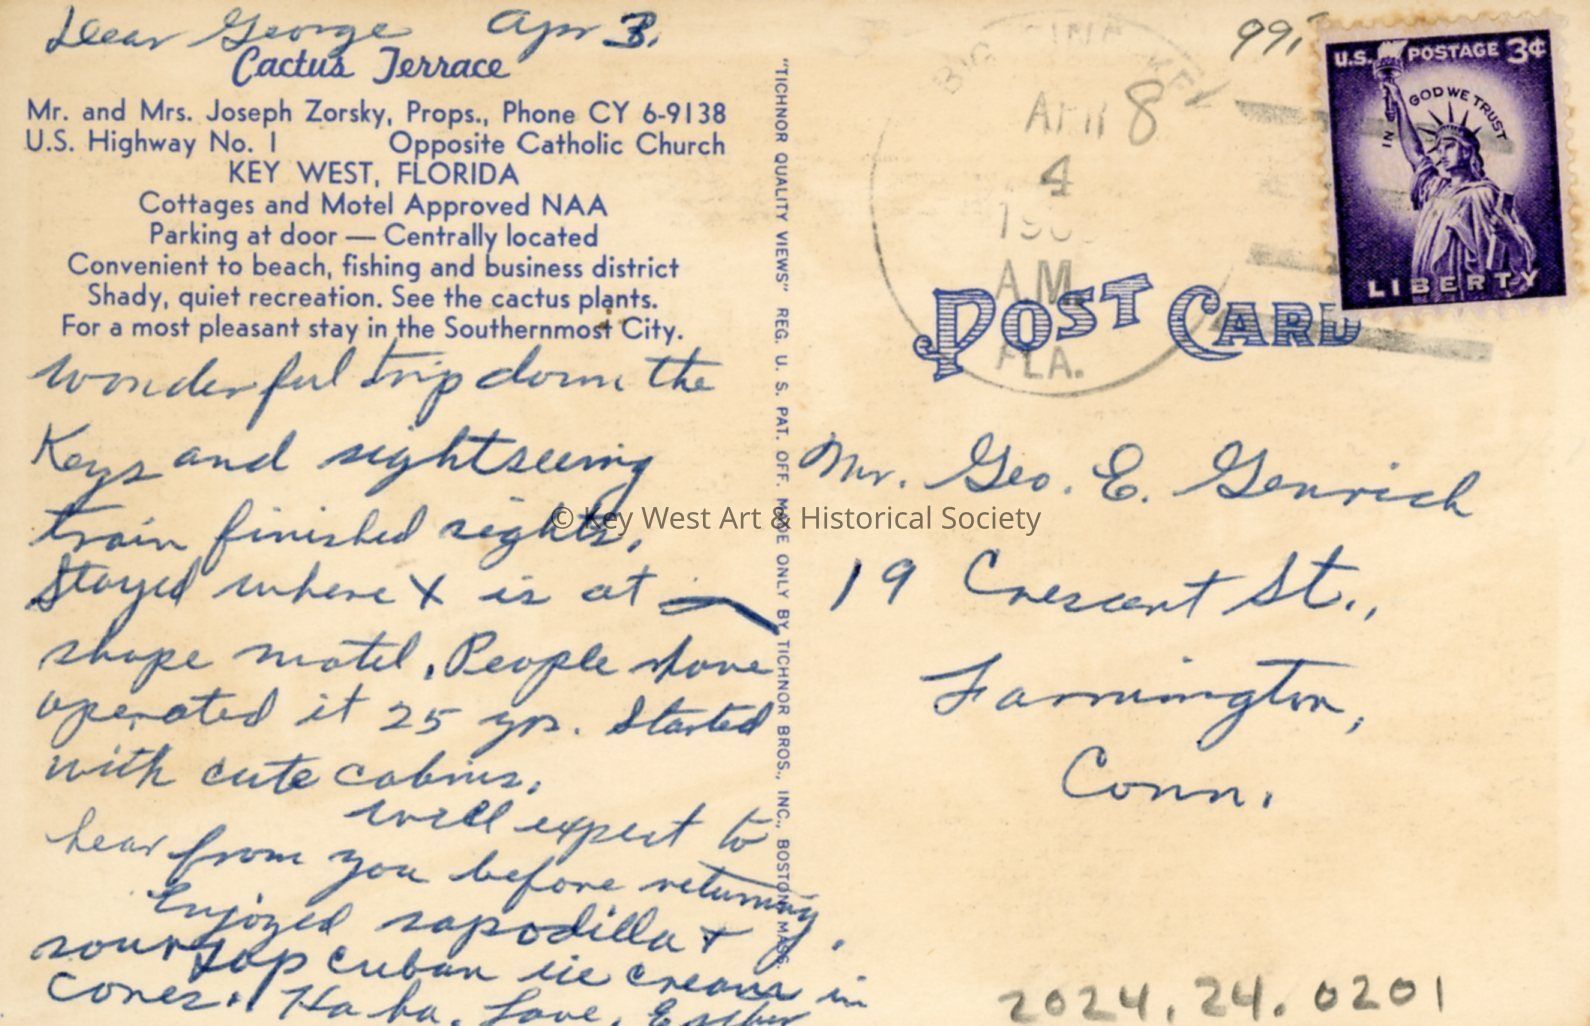 Dear George Apr 3.
Cactus Terrace
Mr. and Mrs. Joseph Zorsky, Props., Phone CY 6-9138
U.S. Highway No. 1 Opposite Catholic Church
KEY WEST, FLORIDA
Cottages and Motel Approved NAA
Parking at door — Centrally located
Convenient to beach, fishing and business district
Shady, quiet recreation. See the cactus plants.
For a most pleasant stay in the Southernmost City.
wonderful trip down the
Keys and sightseeing
train finished sights.
Stayed where X is at
shape motel. People have
operated it 25 yrs. Started
with cute cabins.
Will expect to
hear from you before returning.
Enjoyed sapodilla +
sour sop cuban ice creams in
cones. Ha ha. Love, Esther
"TICHNOR QUALITY VIEWS" REG. U. S. PAT. OFF. MADE ONLY BY TICHNOR BROS., INC., BOSTON, MASS.
BIG PINE KEY
APR 8
4
A.M.
FLA.
U.S. POSTAGE 3¢
IN GOD WE TRUST
LIBERTY
POST CARD
Mr. Geo. E. Genrich
19 Crescent St.,
Farmington,
Conn.
© Key West Art & Historical Society
2024.24.0201